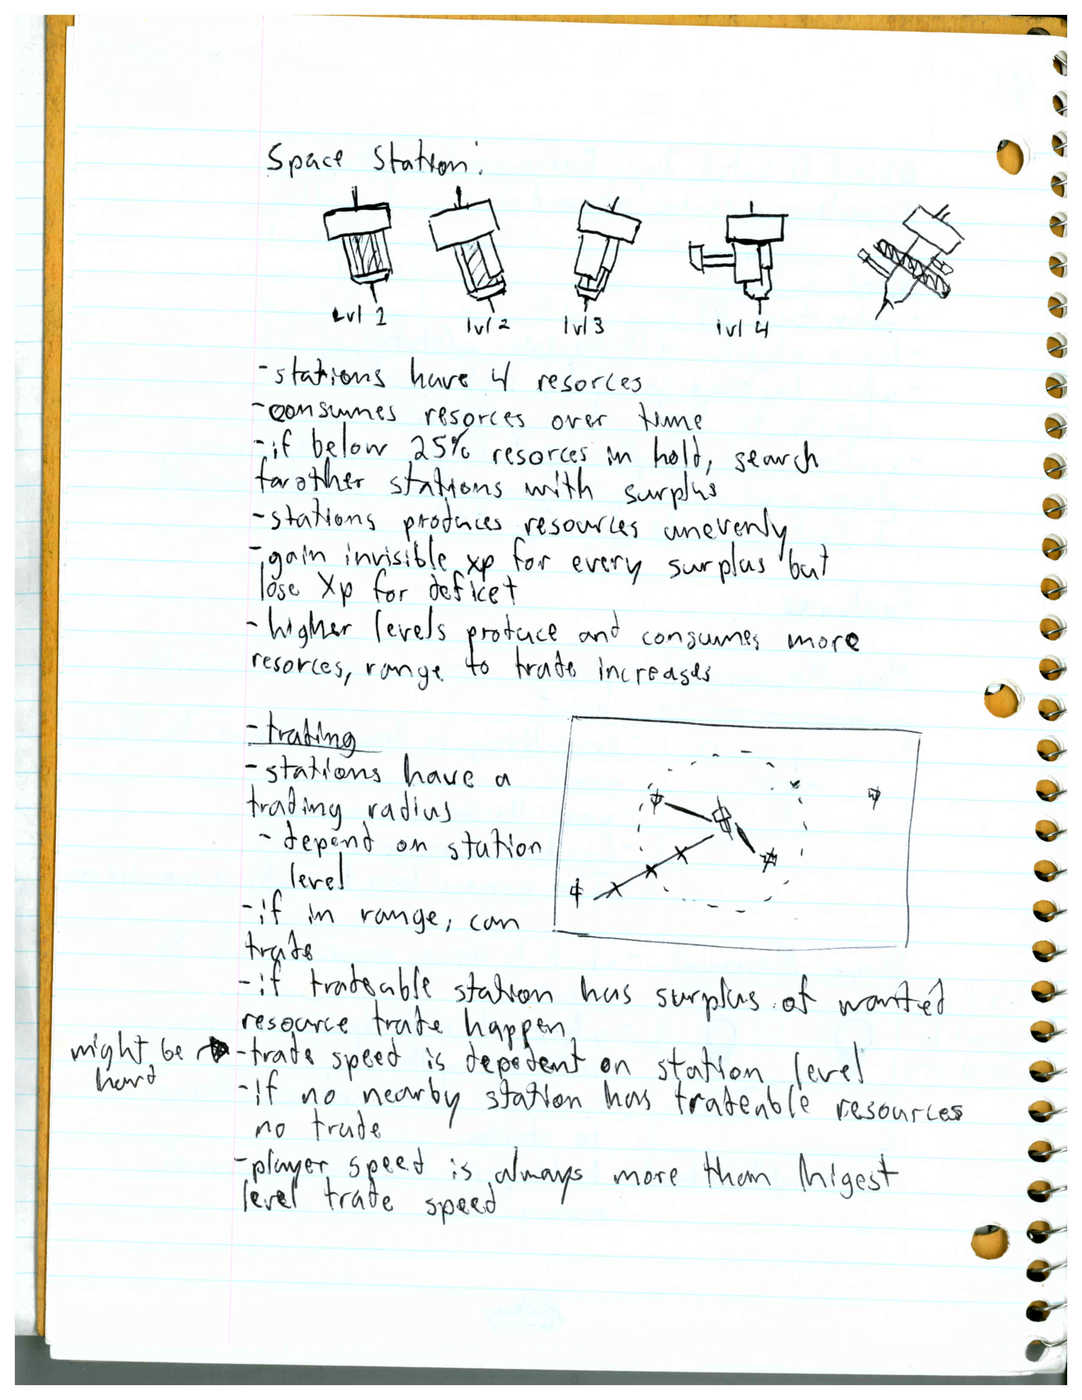 Space Station:
Lvl 1
lvl 2
lvl 3
lvl 4
- stations have 4 resorces
- consumes resorces over time
- if below 25% resorces in hold, search
for other stations with surplus
- stations produces resources unevenly
- gain invisible xp for every surplus but
lose Xp for deficet
- higher levels produce and consumes more
resorces, range to trade increases
- trading
- stations have a
trading radius
- depend on station
level
- if in range, can
trade
- if tradeable station has surplus of wanted
resource trade happen
might be
hard
- trade speed is depedent on station level
- if no nearby station has tradeable resources
no trade
- player speed is always more than higest
level trade speed